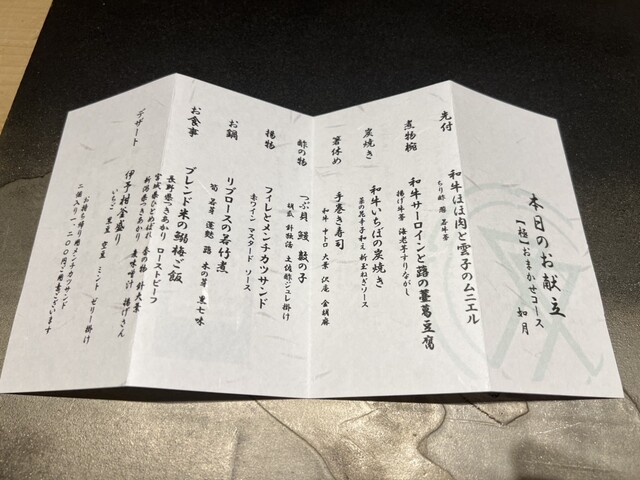 本日のお献立
【極】おまかせコース
如月
先付
和牛ほほ肉と雲子のムニエル
ちり酢 葱 若牛蒡
煮物椀
和牛サーロインと蕗の薹葛豆腐
揚げ牛蒡 海老芋すりながし
炭焼き
和牛いちぼの炭焼き
菜の花辛子和え 新玉ねぎソース
箸休め
手巻き寿司
和牛 中トロ 大葉 沢庵 金胡麻
酢の物
つぶ貝 鰻 数の子
胡瓜 針独活 土佐酢ジュレ掛け
揚物
フィレとメンチカツサンド
赤ワイン マスタード ソース
お鍋
リブロースの若竹煮
筍 若芽 蓬麩 蕗 木の芽 黒七味
お食事
ブレンド米の鰯梅ご飯
長野県つきあかり ローストビーフ
宮城県ひとめぼれ 香の物 針大葉
新潟県つきあかり 麦味噌汁 揚げさん
デザート
伊予柑釜盛り
いちご 黒豆 空豆 ミント ゼリー掛け
お持ち帰り用メンチカツサンド
二個入り一、二〇〇円ご用意ございます